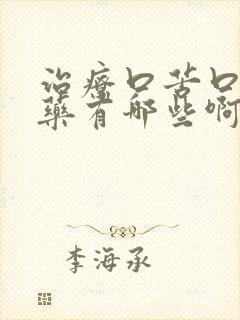 治疗口苦口
药有哪些啊
李海承